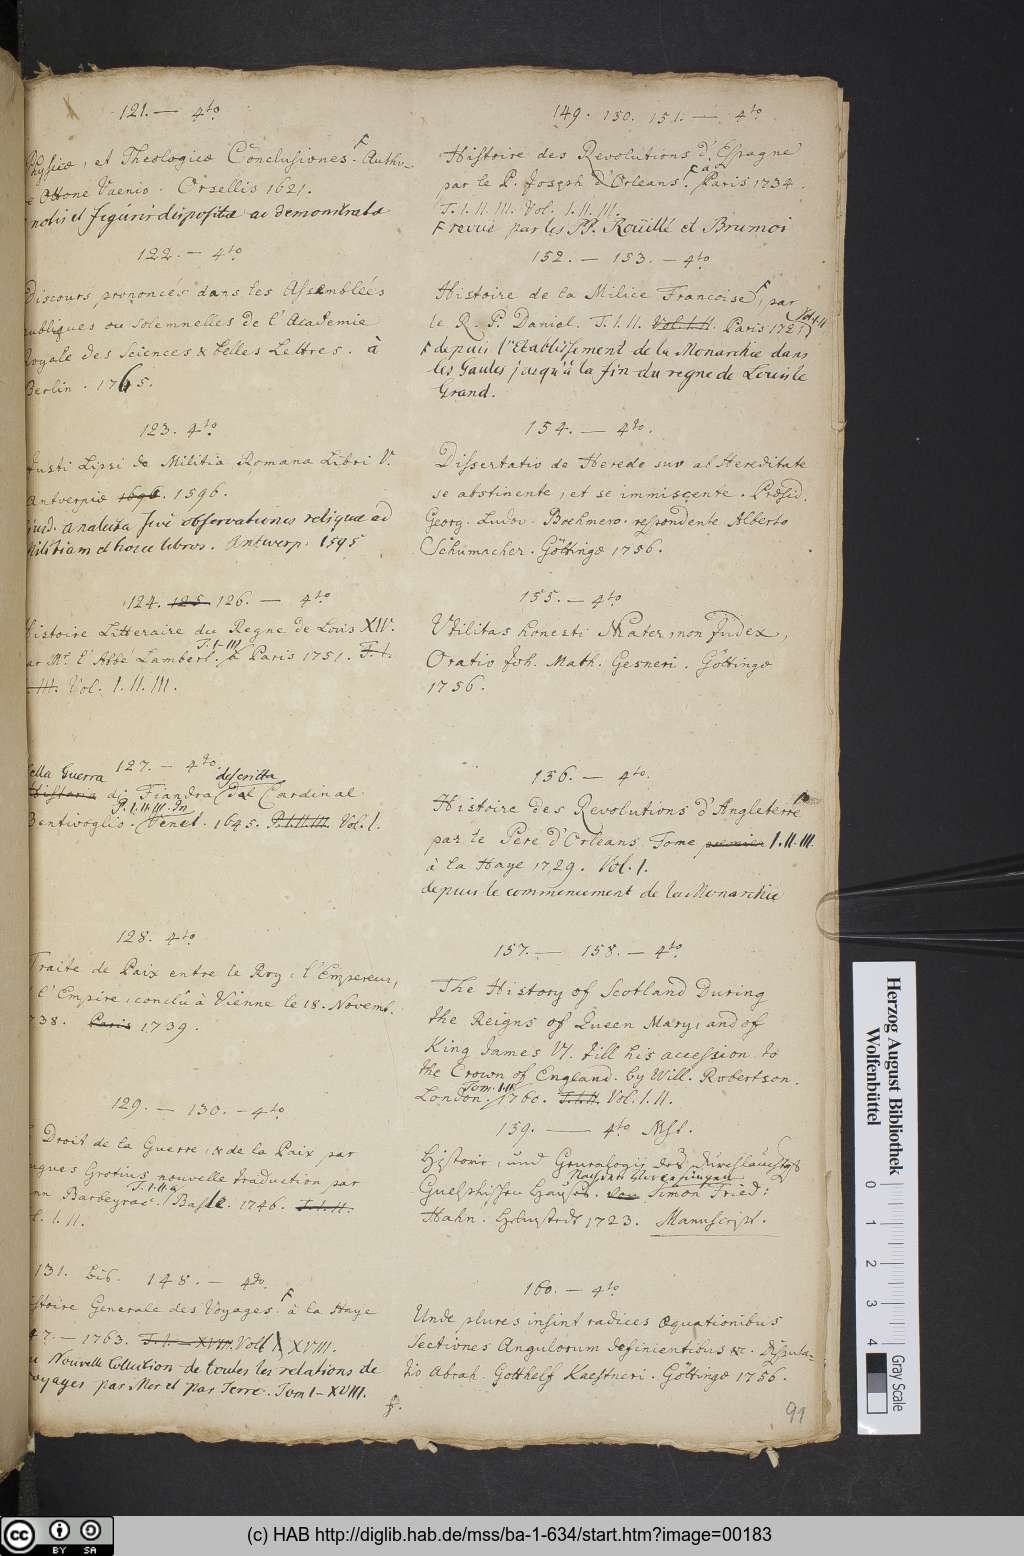 121. — 4to
Physicæ, et Theologicæ Conclusiones. F Autho-
re Ottone Vaenio. Orsellis 1621.
notis et figuris dispositæ ac demonstratæ
122. — 4to
Discours prononcés dans les Assemblées
publiques ou solemnelles de l'Academie
Royale des Sciences & belles Lettres. à
Berlin. 1765.
123. 4to
Justi Lipsi de Militia Romana Libri V.
Antverpiæ 1696. 1596.
Ejusd. Analecta sive observationes reliquæ ad
Militiam et hosce libros. Antwerp. 1595
124. 125. 126. — 4to
Histoire Litteraire du Regne de Louis XIV.
par Mr. l'Abbé Lambert. T. I-III à Paris 1751. T. I.
II. III. Vol. I. II. III.
127. — 4to.
della Guerra descritta
Historia di Fiandra dal Cardinal
P. I. II. III. In
Bentivoglio. Venet. 1645. P. I. II. III. Vol. I.
128. 4to
Traité de Paix entre le Roy, l'Empereur,
& l'Empire, conclû à Vienne le 18. Novemb.
1738. Paris 1739.
129. — 130. — 4to
Droit de la Guerre, & de la Paix par
Hugues Grotius nouvelle traduction par
Jean Barbeyrac. T. I. II. à Basle. 1746. T. I. II.
Vol. I. II.
131. bis. 148. — 4to.
Histoire Generale des Voyages. F à la Haye
1747. — 1763. T. I. — XVIII. Vol. I XVIII.
ou Nouvelle Collection de toutes les relations de
Voyages par Mer et par Terre. Tom I - XVIII.
149. 150. 151. — 4to
Histoire des Revolutions d'Espagne
par le P. Joseph d'Orleans. F à Paris 1734.
T. I. II. III. Vol. I. II. III.
F revue par les PP. Roüillé et Brumoi
152. — 153. — 4to
Histoire de la Milice Francoise F, par
le R. P. Daniel. T. I. II. Vol. I. II. Paris 1721
F depuis l'Etablissement de la Monarchie dans
les Gaules jusqu'à la fin du regne de Louis le
Grand.
154. — 4to.
Dissertatio de Herede suo ab Hereditate
se abstinente, et se immiscente. Præsid.
Georg. Ludov. Boehmero. respondente Alberto
Schumacher. Göttingæ 1756.
155. — 4to
Utilitas honesti Mater, non Judex,
Oratio Joh. Math. Gesneri. Göttingæ
1756.
156. — 4to.
Histoire des Revolutions d'Angleterre F
par le Pere d'Orleans. Tome premier I. II. III.
à la Haye 1729. Vol. I.
depuis le commencement de la Monarchie
157. — 158. — 4to
The History of Scotland During
the Reigns of Queen Mary, and of
King James VI. till his accession to
the Crown of England. by Will. Robertson.
London. Tom. I. II. 1760. T. I. II. Vol. I. II.
159. — 4to Mst.
Historie, und Genealogie des Durchlauchtigst
Guelphischen Hauses. von Simon Fried:
Hahn. Helmstedt 1723. Manuscript.
160. — 4to
Unde plures insint radices æquationibus
Sectiones Angulorum definientibus &c. Disputa-
tio Abrah. Gotthelf Kaestneri. Göttingæ 1756.
91
Herzog August Bibliothek
Wolfenbüttel
0 1 2 3 4
Gray Scale
cc BY SA
(c) HAB http://diglib.hab.de/mss/ba-1-634/start.htm?image=00183